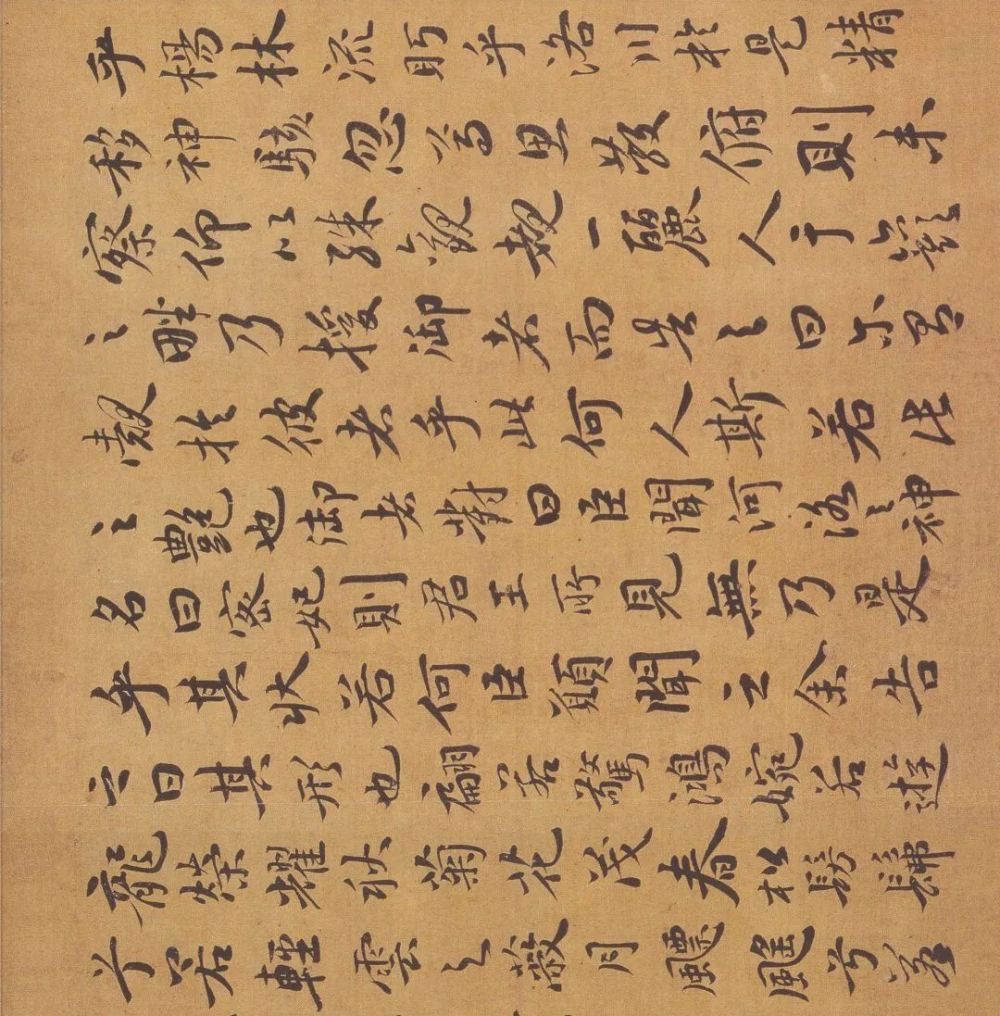 乎楊林流眄乎洛川於是精
移神駭忽焉思散俯則未
察仰以殊觀覩一麗人于巖
之畔乃援御者而告之曰尔有
覿於彼者乎此何人斯若此
之艷也御者對曰臣聞河洛之神
名曰宓妃則君王所見無乃是
乎其狀若何臣願聞之余告
之曰其形也翩若驚鴻婉若遊
龍榮耀秋菊花茂春松髣髴
兮若輕雲之蔽月飄颻兮若